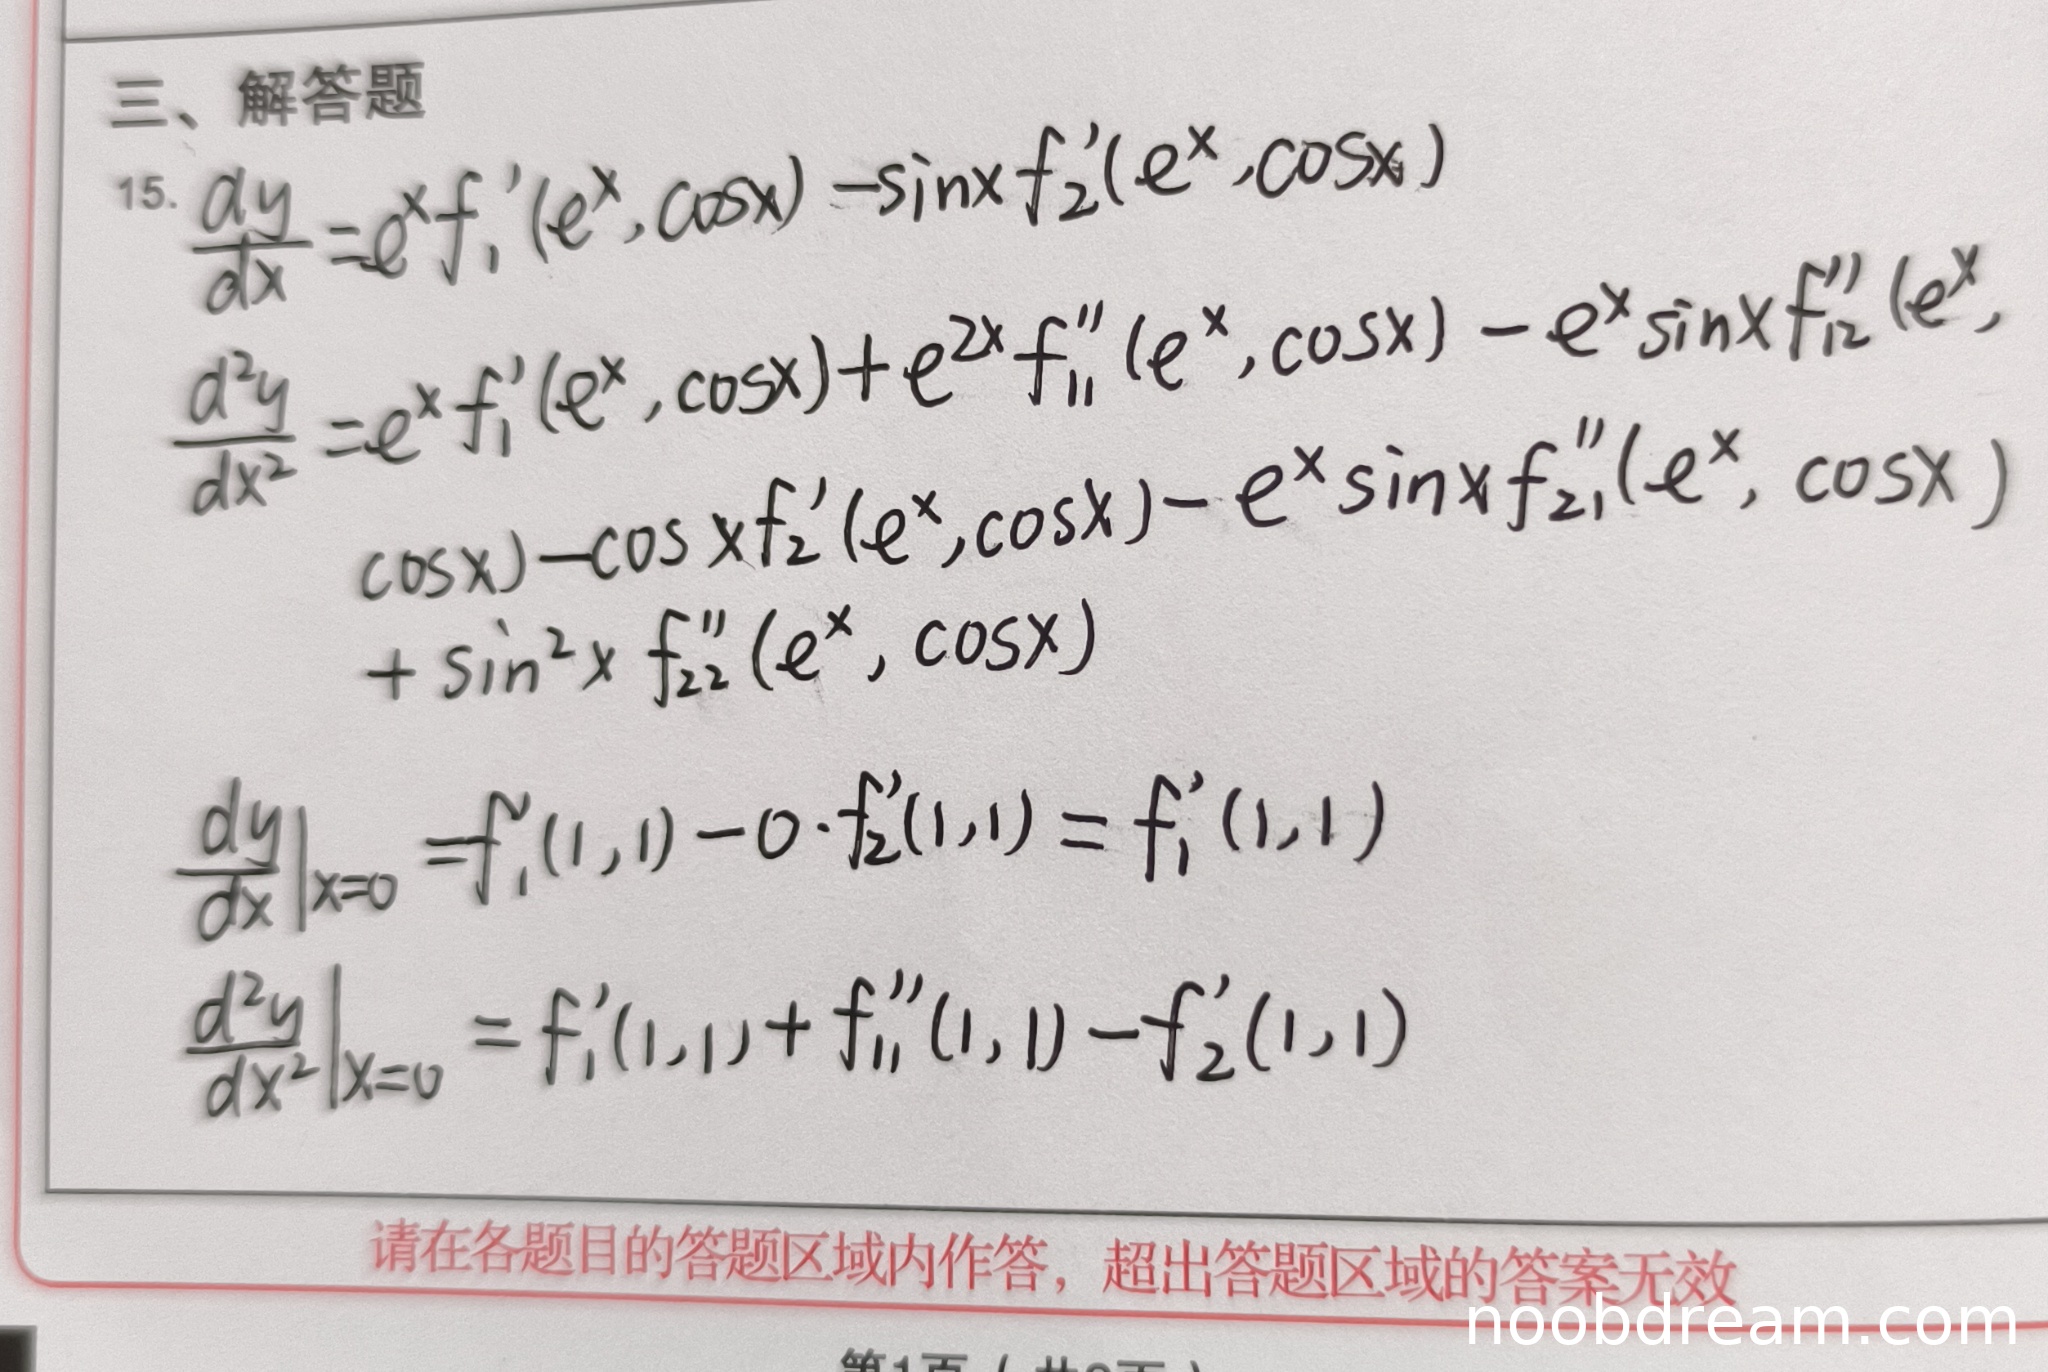 三、解答题
15. dy/dx = e^x f₁'(e^x, cosx) - sinx f₂'(e^x, cosx)
d²y/dx² = e^x f₁'(e^x, cosx) + e^{2x} f₁₁''(e^x, cosx) - e^x sinx f₁₂''(e^x,
cosx) - cosx f₂'(e^x, cosx) - e^x sinx f₂₁''(e^x, cosx)
+ sin²x f₂₂''(e^x, cosx)
dy/dx|x=0 = f₁'(1,1) - 0·f₂'(1,1) = f₁'(1,1)
d²y/dx²|x=0 = f₁'(1,1) + f₁₁''(1,1) - f₂'(1,1)
请在各题目的答题区域内作答，超出答题区域的答案无效
noobdream.com